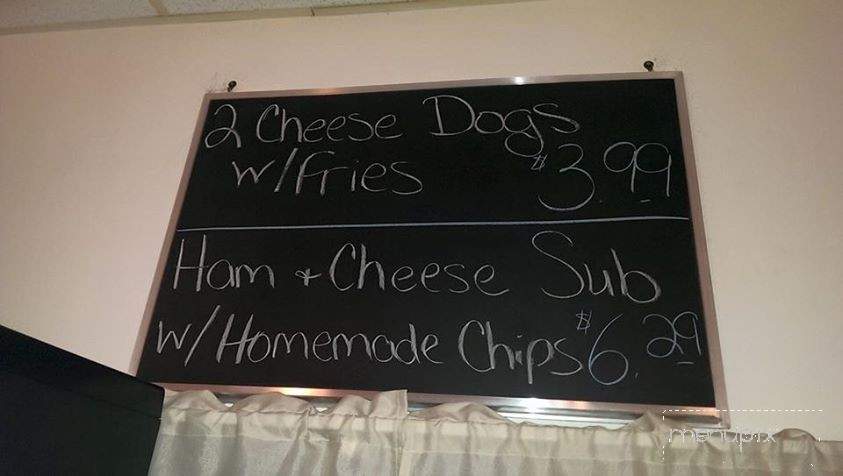 2 Cheese Dogs
w/Fries $3.99
Ham + Cheese Sub
w/Homemade Chips $6.29
menupix